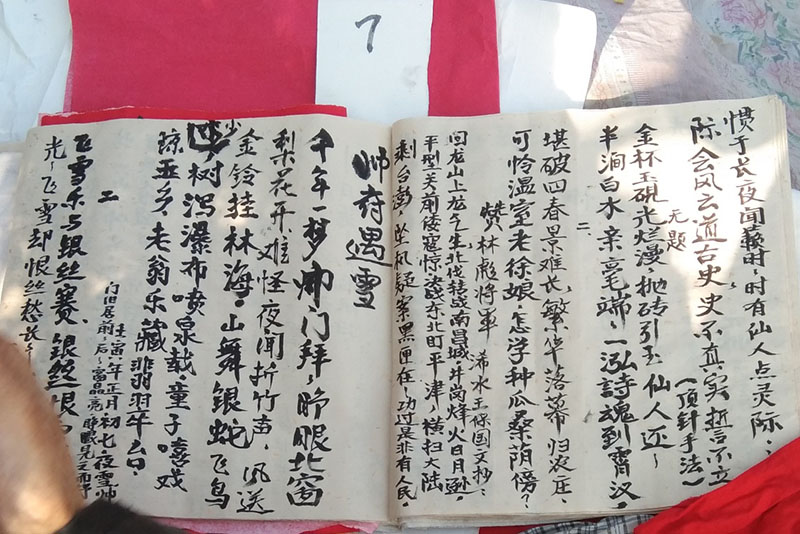 7
惯于长夜闻藙时，时有仙人点灵际，
际会风云道古史，史不真实誓言不立
（顶针手法）
无题
金杯玉砚光烂漫，抛砖引玉仙人还，
半涧白水亲毫端，一泓詩魂到霄汉。
二
堪破四春景难长，繁华落幕归农庄，
可怜温室老徐娘，怎学种瓜桑阴傍？
赞林彪将军 浠水王保国文抄：
回龙山上龙气生，北伐转战南昌城，井岗烽火日月逊，
平型关前倭寇惊，决战东北盯平津，横扫大陆
剩台澎，坠机疑案黑匣在，功过是非有人民。
帅府遇雪
千年一梦帅门拜，睁眼北窗
梨花开，难怪夜闻折竹声，风送
金铃挂林海。山舞銀蛇飞鸟
少，树泻瀑布喷泉哉。童子嘻戏
琼玉乡，老翁乐藏翡翠台。
壬寅年正月初七夜雪帅
府旧居前后
二
飞雪乐与银丝赛，银丝恨
光，飞雪却恨丝愁长